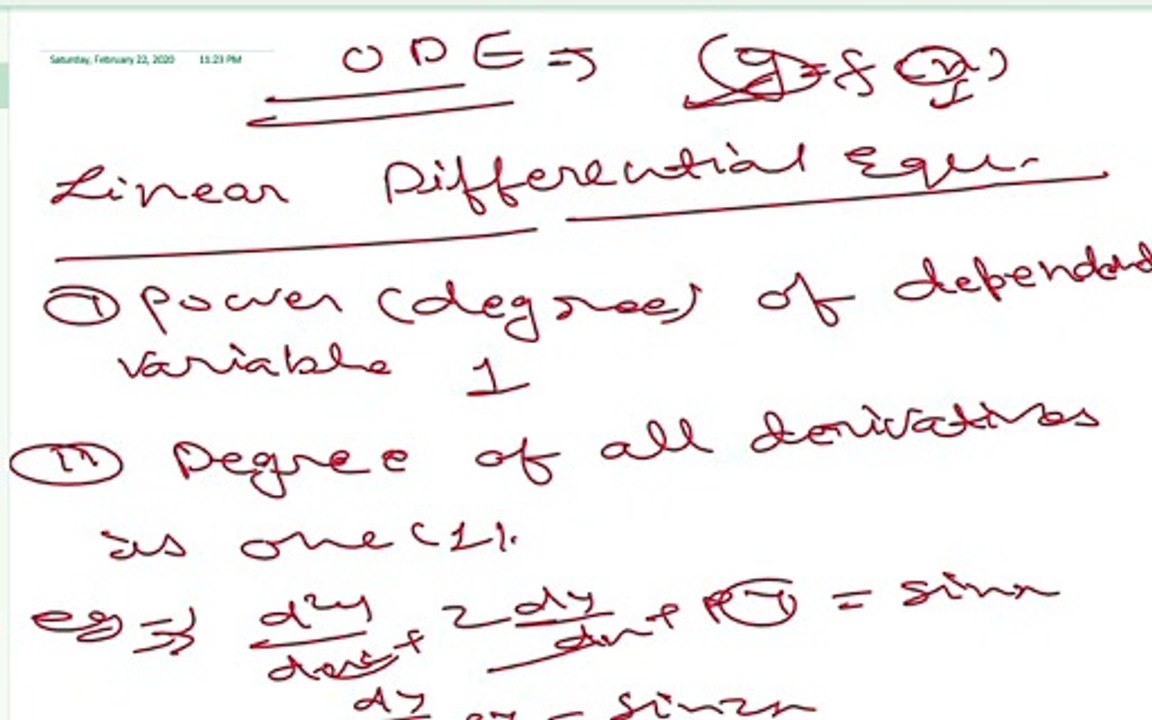 Saturday, February 22, 2020 11:23 PM
ODE ⇒ (y = f(x))
Linear Differential Equ.
① Power (degree) of dependent
variable 1
② Degree of all derivatives
is one (1).
eg ⇒ d²y/dx² + 2 dy/dx + Py = sinx
dy = sin2x